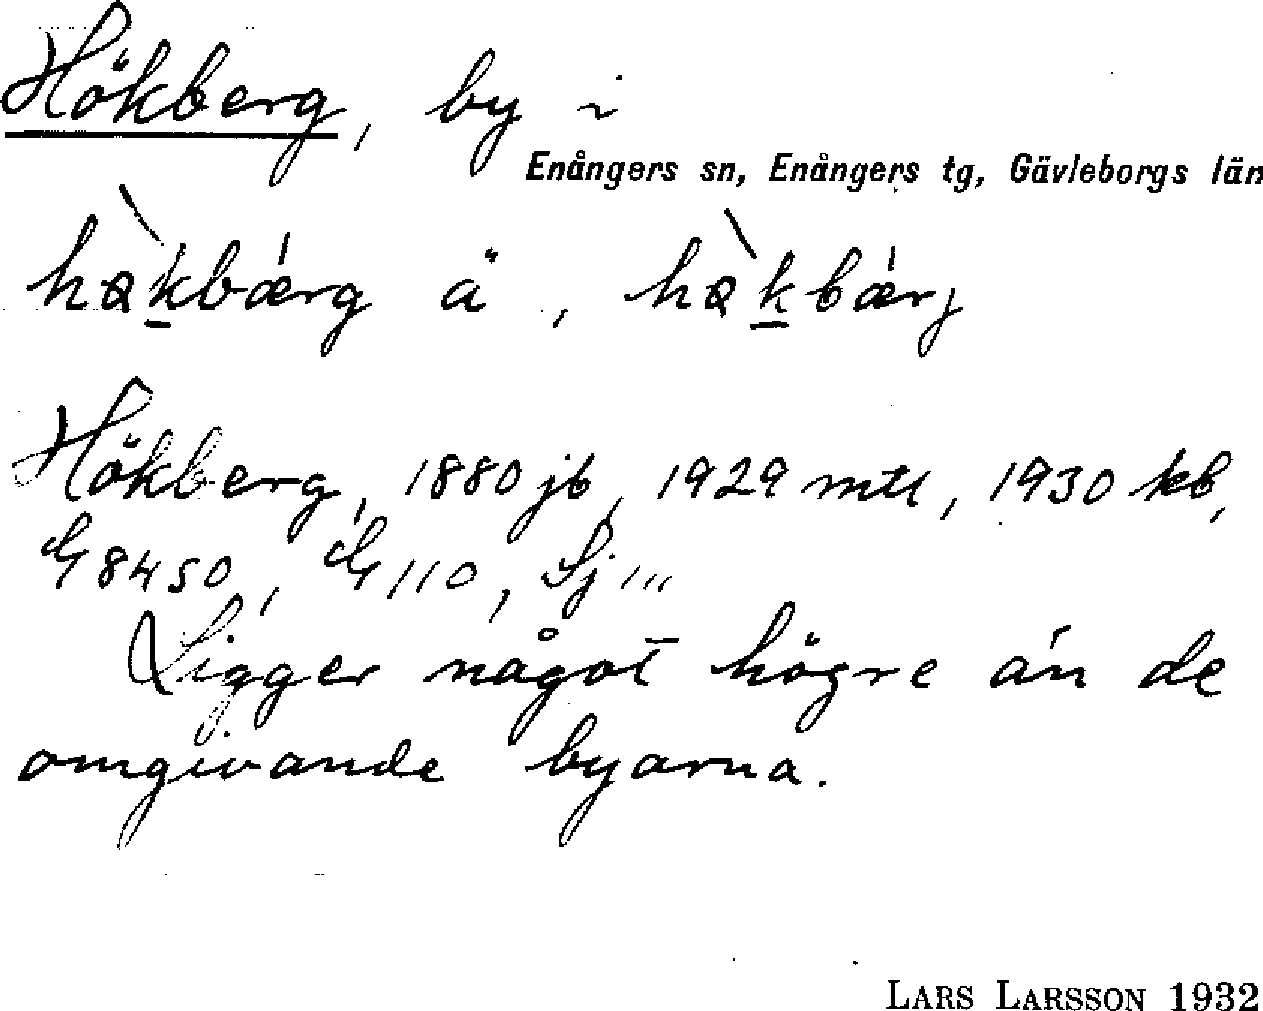 Hökberg, by i
Enångers sn, Enångers tg, Gävleborgs län
Hökberg, 1880 jb, 1929 mtl, 1930 kb,
G 8450, G 110, Sj
Ligger något högre än de
omgivande byarna.
LARS LARSSON 1932